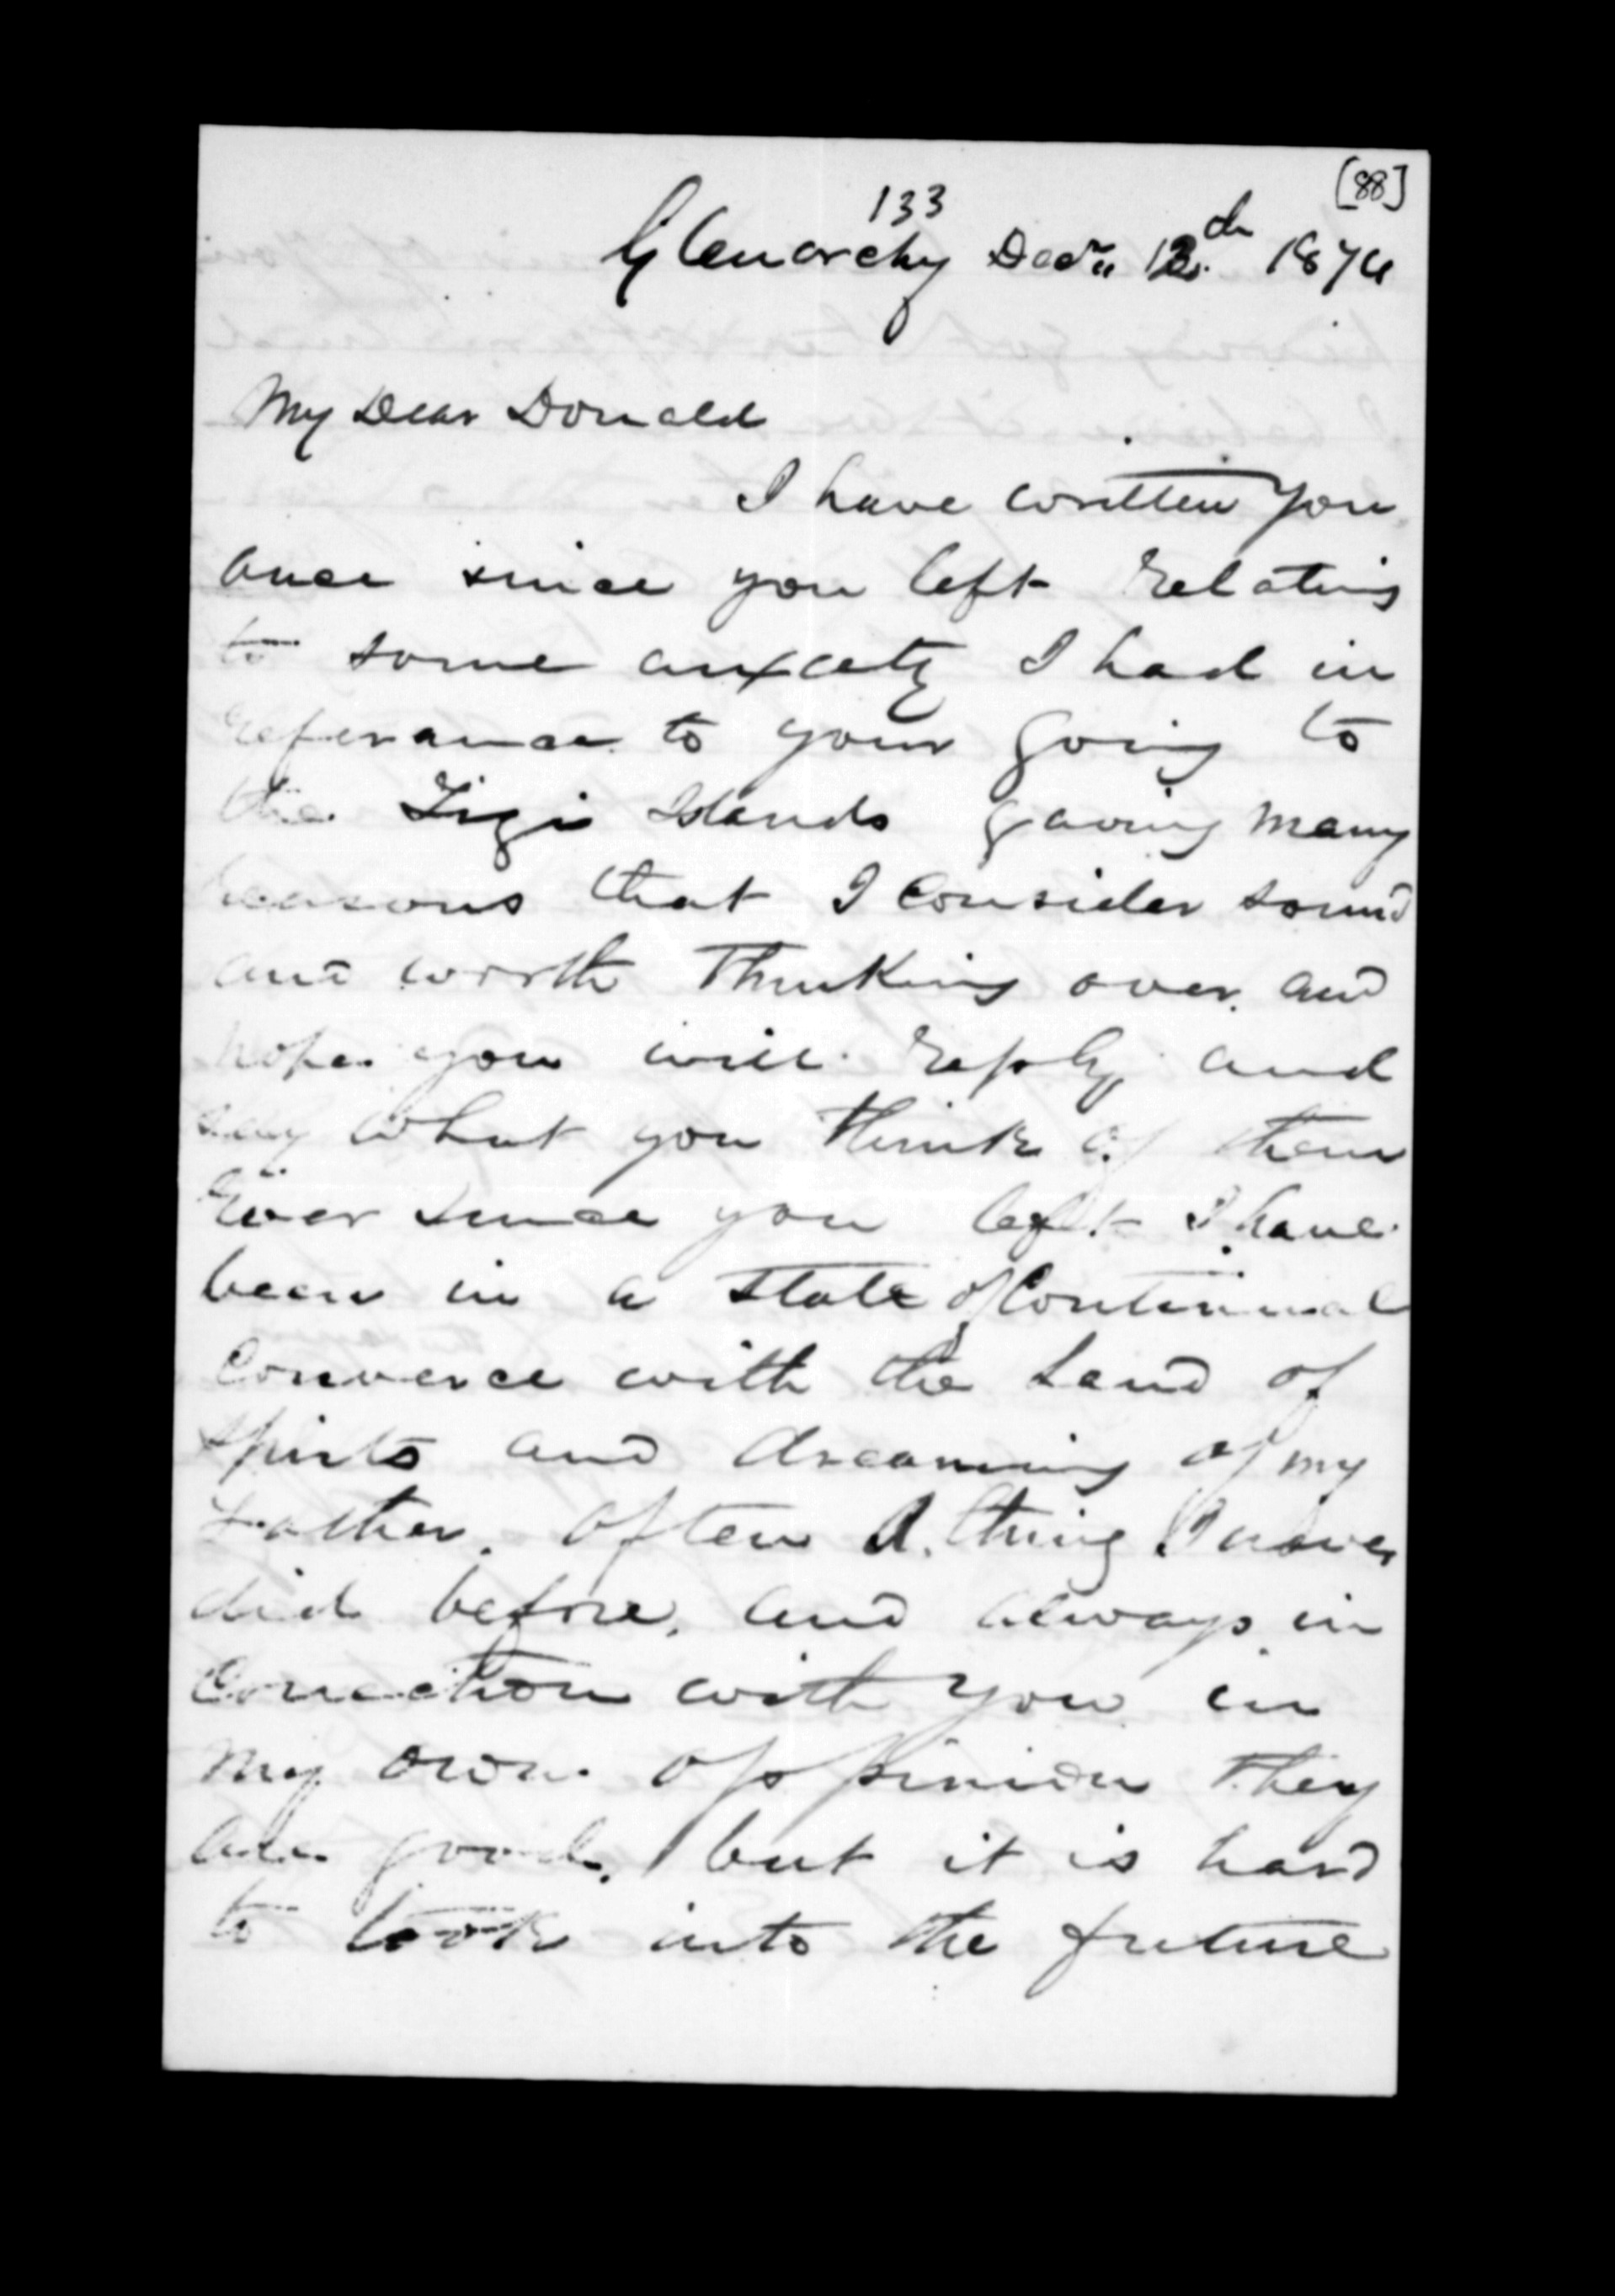 [88]
133
Glenorchy Decr. 12th 1874
My Dear Donald
I have written you
once since you left relating
to some anxcety I had in
referance to your going to
the Figi Islands gaving many
reasons that I consider sound
and worth thinking over. and
hope you will reply and
say what you think of them
Ever since you left I have
been in a state of Continual
Converce with the Land of
spirits and dreaming of my
Father. often A thing I never
did before. and always in
Conection with you in
my own oppinion they
are good. but it is hard
to look into the future